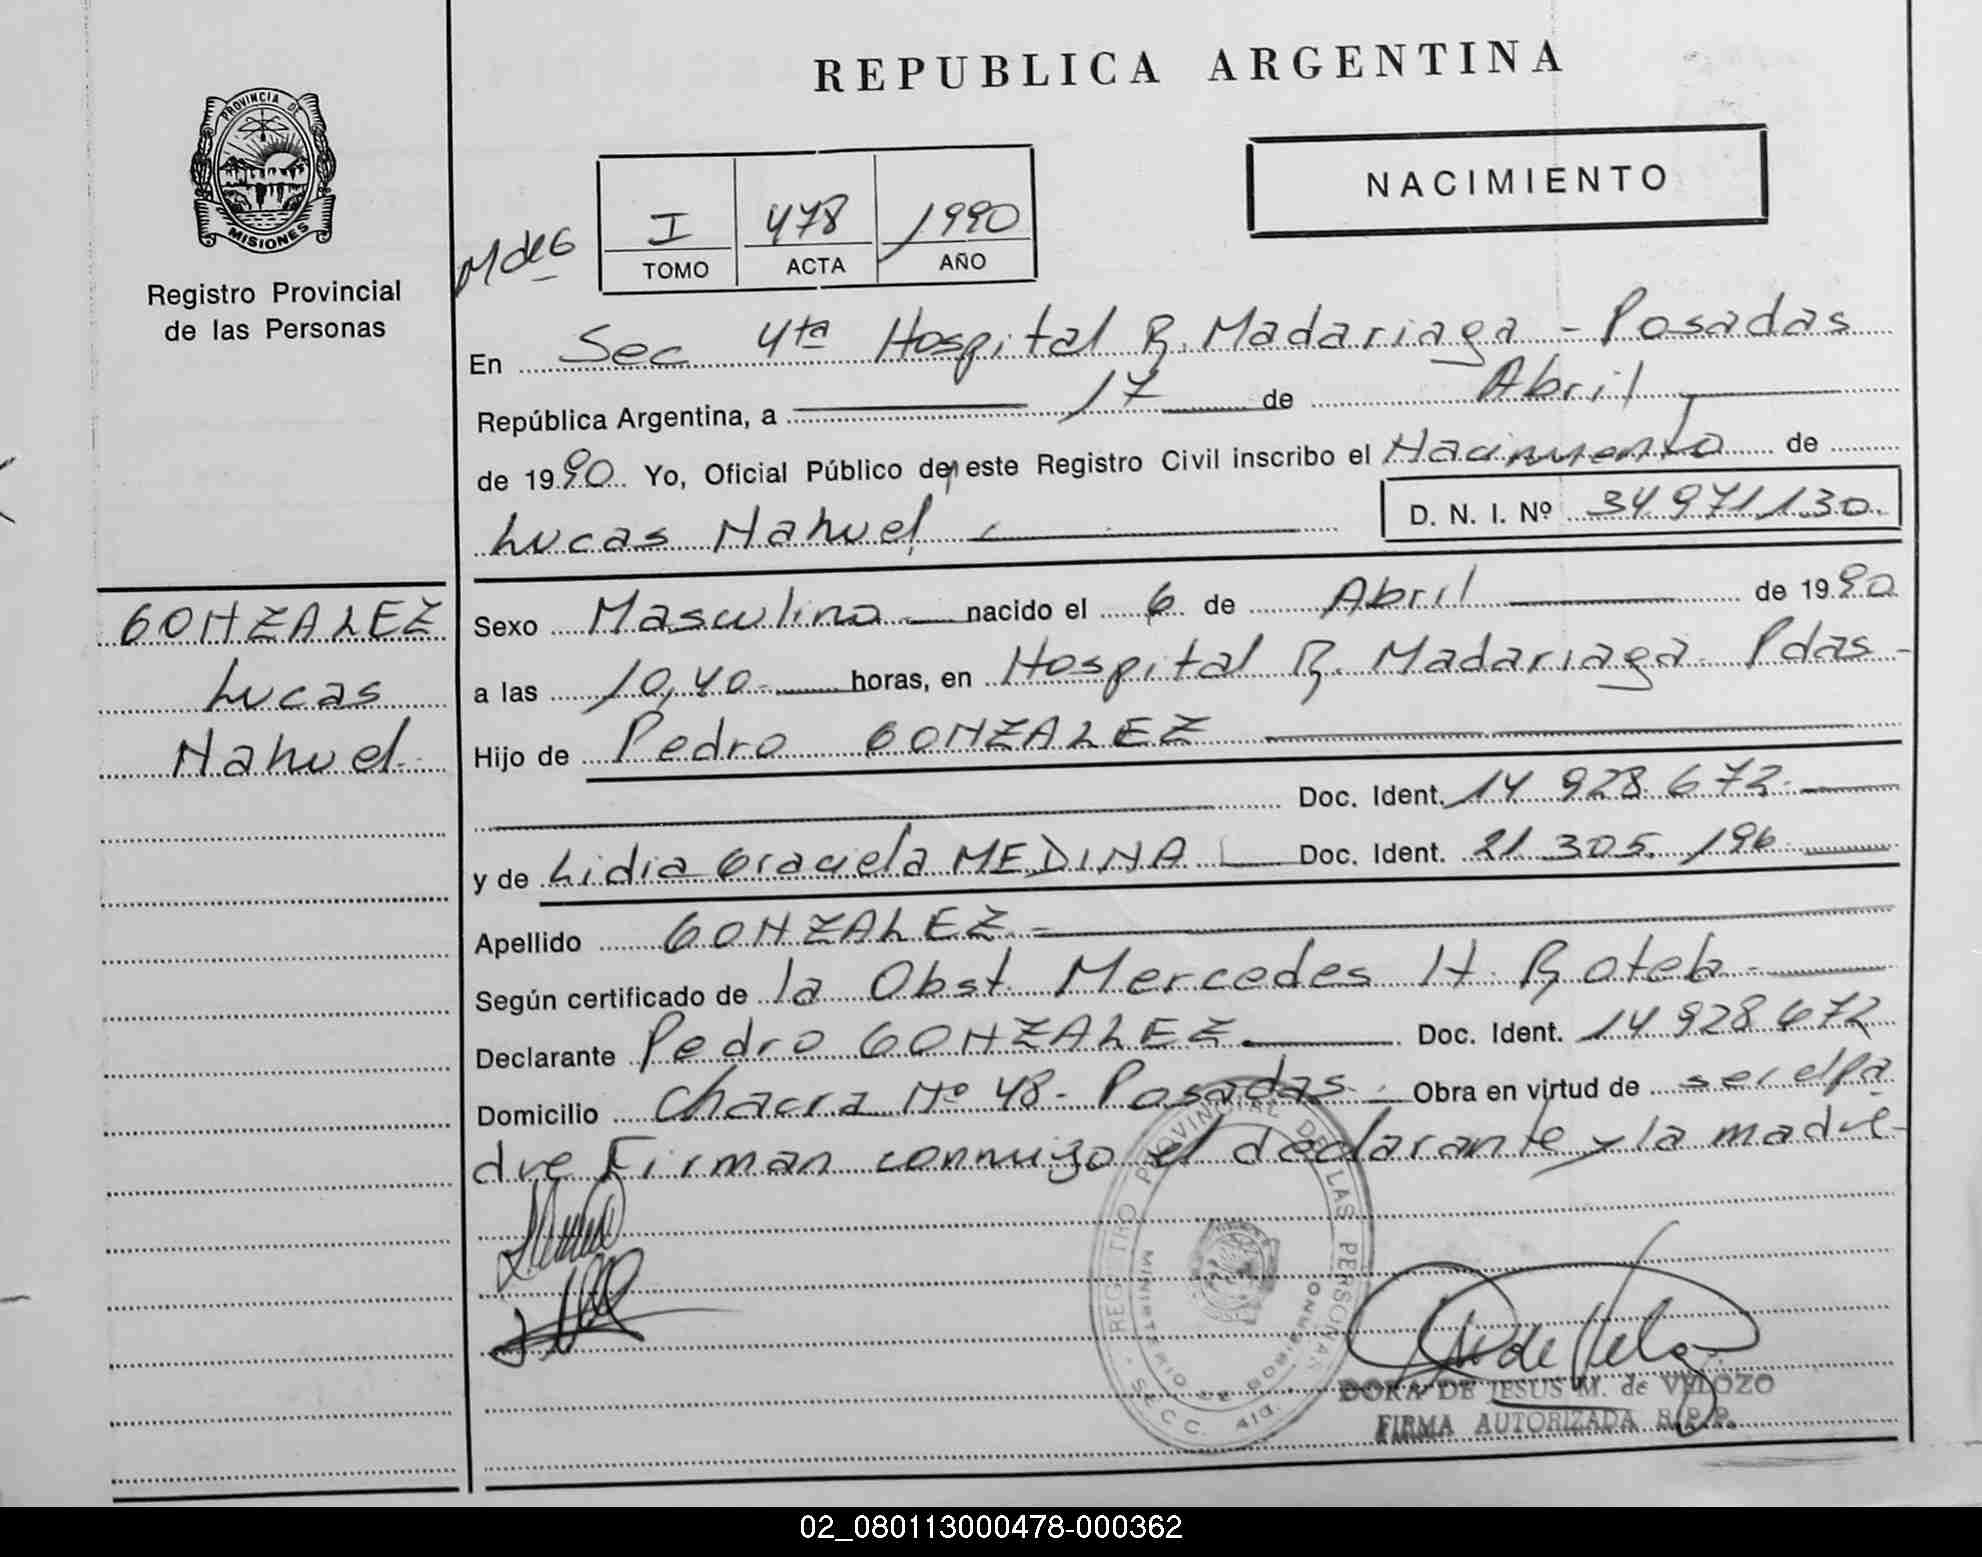 REPUBLICA ARGENTINA
PROVINCIA DE
MISIONES
Registro Provincial
de las Personas
NACIMIENTO
M de G
I 478 1990
TOMO ACTA AÑO
En Sec 4ta Hospital R. Madariaga - Posadas
República Argentina, a 17 de Abril
de 1990 Yo, Oficial Público de este Registro Civil inscribo el Nacimiento de
Lucas Nahuel D. N. I. Nº 34971130
GONZALEZ
Lucas
Nahuel
Sexo Masculino nacido el 6 de Abril de 1990
a las 10,40 horas, en Hospital R. Madariaga Pdas -
Hijo de Pedro GONZALEZ
Doc. Ident. 14 928 672
y de Lidia Graciela MEDINA Doc. Ident. 21 305 196
Apellido GONZALEZ
Según certificado de la Obst Mercedes H.
Declarante Pedro GONZALEZ Doc. Ident. 14 928 672
Domicilio Chacra Nº 48 - Posadas Obra en virtud de ser el pa
dre Firman conmigo el declarante y la madre -
REGISTRO PROVINCIAL DE LAS PERSONAS
MINISTERIO DE GOBIERNO
SECC. 4ta.
DORA DE JESUS M. de VELOZO
FIRMA AUTORIZADA R.P.P.
02_080113000478-000362